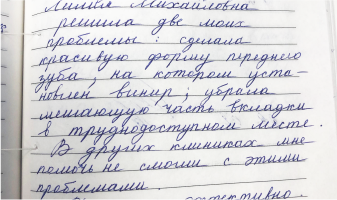 Михайловна
решила две моих
проблемы: сделала
красивую форму переднего
зуба, на котором уста-
новлен винир; убрала
мешающую часть вкладки
в труднодоступном месте.
В других клиниках мне
помочь не смогли с этими
проблемами.